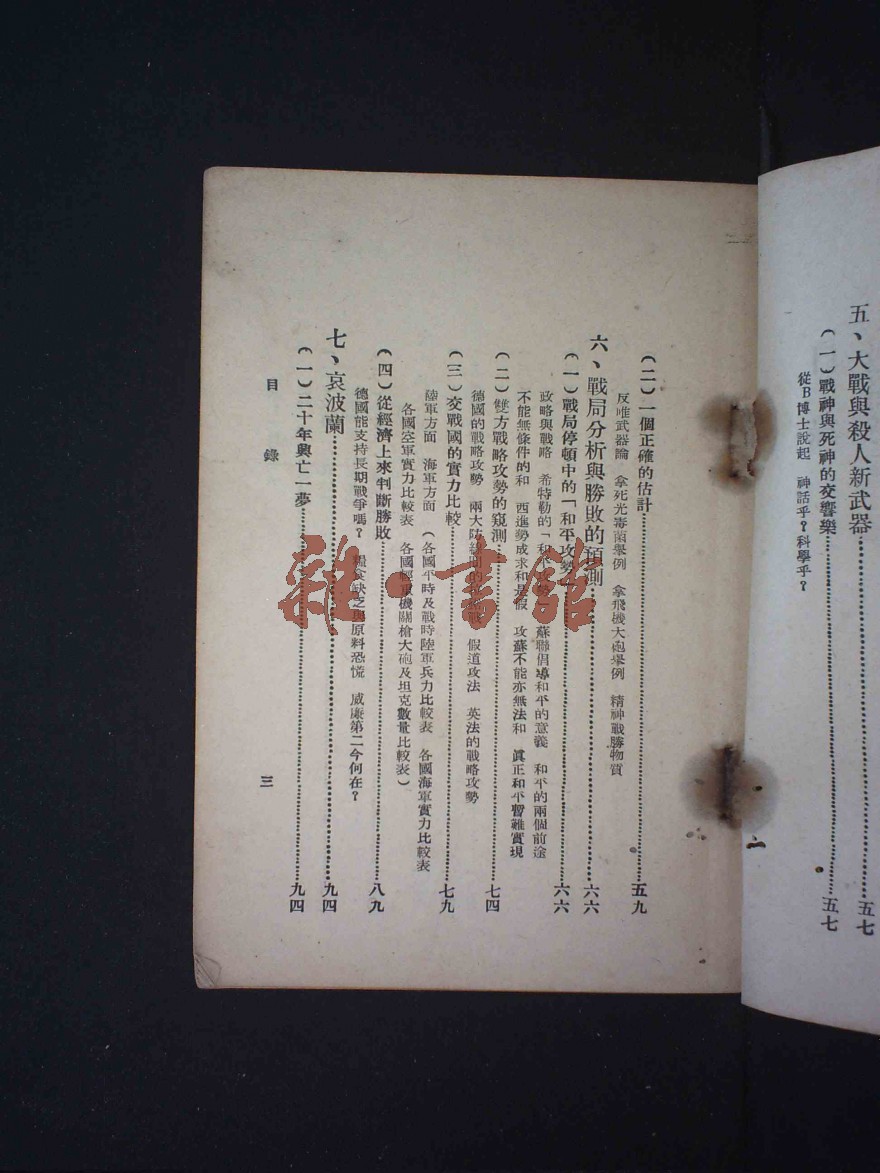 五、大戰與殺人新武器……五七
(一)戰神與死神的交響樂……五七
從B博士說起 神話乎?科學乎?
二
(二)一個正確的估計……五九
反唯武器論 拿死光毒菌舉例 拿飛機大砲舉例 精神戰勝物質
六、戰局分析與勝敗的預測……六六
(一)戰局停頓中的「和平攻勢」……六六
政略與戰略 希特勒的「和平攻勢」 蘇聯倡導和平的意義 和平的兩個前途
不能無條件的和 西進勢成求和是假 攻蘇不能亦無法和 眞正和平暫難實現
(二)雙方戰略攻勢的窺測……七四
德國的戰略攻勢 兩大防線間的 戰 假道攻法 英法的戰略攻勢
(三)交戰國的實力比較……七九
陸軍方面 海軍方面 (各國平時及戰時陸軍兵力比較表 各國海軍實力比較表
各國空軍實力比較表 各國輕重機關槍大砲及坦克數量比較表)
(四)從經濟上來判斷勝敗……八九
德國能支持長期戰爭嗎? 糧食缺乏與原料恐慌 威廉第二今何在?
七、哀波蘭……九四
(一)二十年興亡一夢……九四
目錄
三
雜·書館